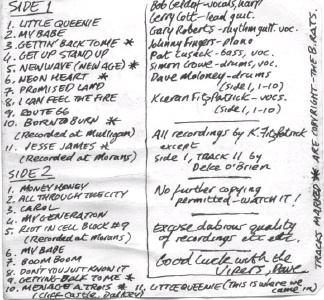 SIDE 1
1. LITTLE QUEENIE
2. MY BABE
3. GETTIN' BACK TO ME *
4. GET UP STAND UP
5. NEW WAVE (NEW AGE) *
6. NEON HEART *
7. PROMISED LAND
8. I CAN FEEL THE FIRE
9. ROUTE 66
10. BORN TO BURN *
(Recorded at Mulligan)
11. JESSE JAMES *
(Recorded at Morans)
SIDE 2
1. MONEY HONEY
2. ALL THROUGH THE CITY
3. CAROL
4. MY GENERATION
5. RIOT IN CELL BLOCK #9
(Recorded at Morans)
6. MY BABE
7. BOOM BOOM
8. DON'T YOU JUST KNOW IT
9. GETTING BACK TO ME *
10. MENAGE A TROIS *
(Cliff Castle, Dalkey)
11. LITTLE QUEENIE (This is where we came in)
Bob Geldof - vocals, harp
Gerry Cott - lead guit.
Gary Roberts - rhythm guit. voc.
Johnny Fingers - piano
Pat Cusack - bass, voc.
Simon Crowe - drums, voc.
Dave Moloney - drums
(side 1, 1-10)
Kieran Fitzpatrick - vocs.
(side 1, 1-10)
All recordings by K. Fitzpatrick
except
side 1, TRACK 11 by
Deke O'Brien
No further copying
permitted - WATCH IT!
Excuse dubious quality
of recordings etc etc.
Good luck with the
Vipers, Dave
TRACKS MARKED * ARE COPYRIGHT - THE B. RATS.